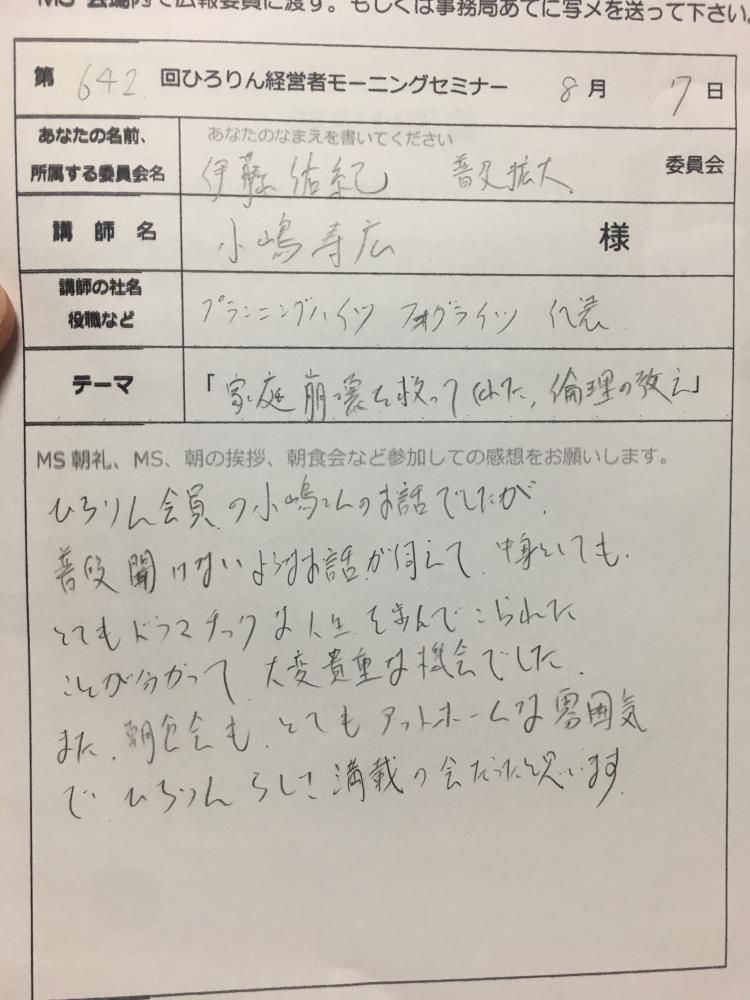 MS 会場内で広報委員に渡す。もしくは事務局あてに写メを送って下さい。
第 642 回ひろりん経営者モーニングセミナー 8月 7日
あなたの名前、
所属する委員会名
あなたのなまえを書いてください
伊藤佑紀 普及拡大 委員会
講師名 小嶋寿広 様
講師の社名
役職など
プランニングハイツ フォグライツ 代表
テーマ 「家庭崩壊を救ってくれた、倫理の教え」
MS 朝礼、MS、朝の挨拶、朝食会など参加しての感想をお願いします。
ひろりん会員の小嶋さんのお話でしたが、
普段聞けないようなお話が伺えて、中身としても、
とてもドラマチックな人生を歩んでこられた
ことが分かって、大変貴重な機会でした。
また、朝食会も、とてもアットホームな雰囲気
で、ひろりんらしさ満載の会だったと思います